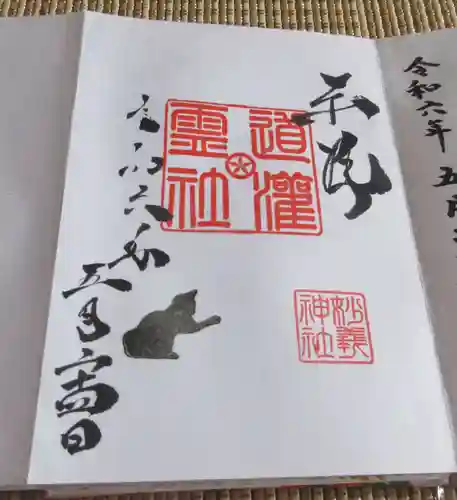 奉拝
道灌
霊社
妙義
神社
令和六年
五月二十四日
令和六年
五月